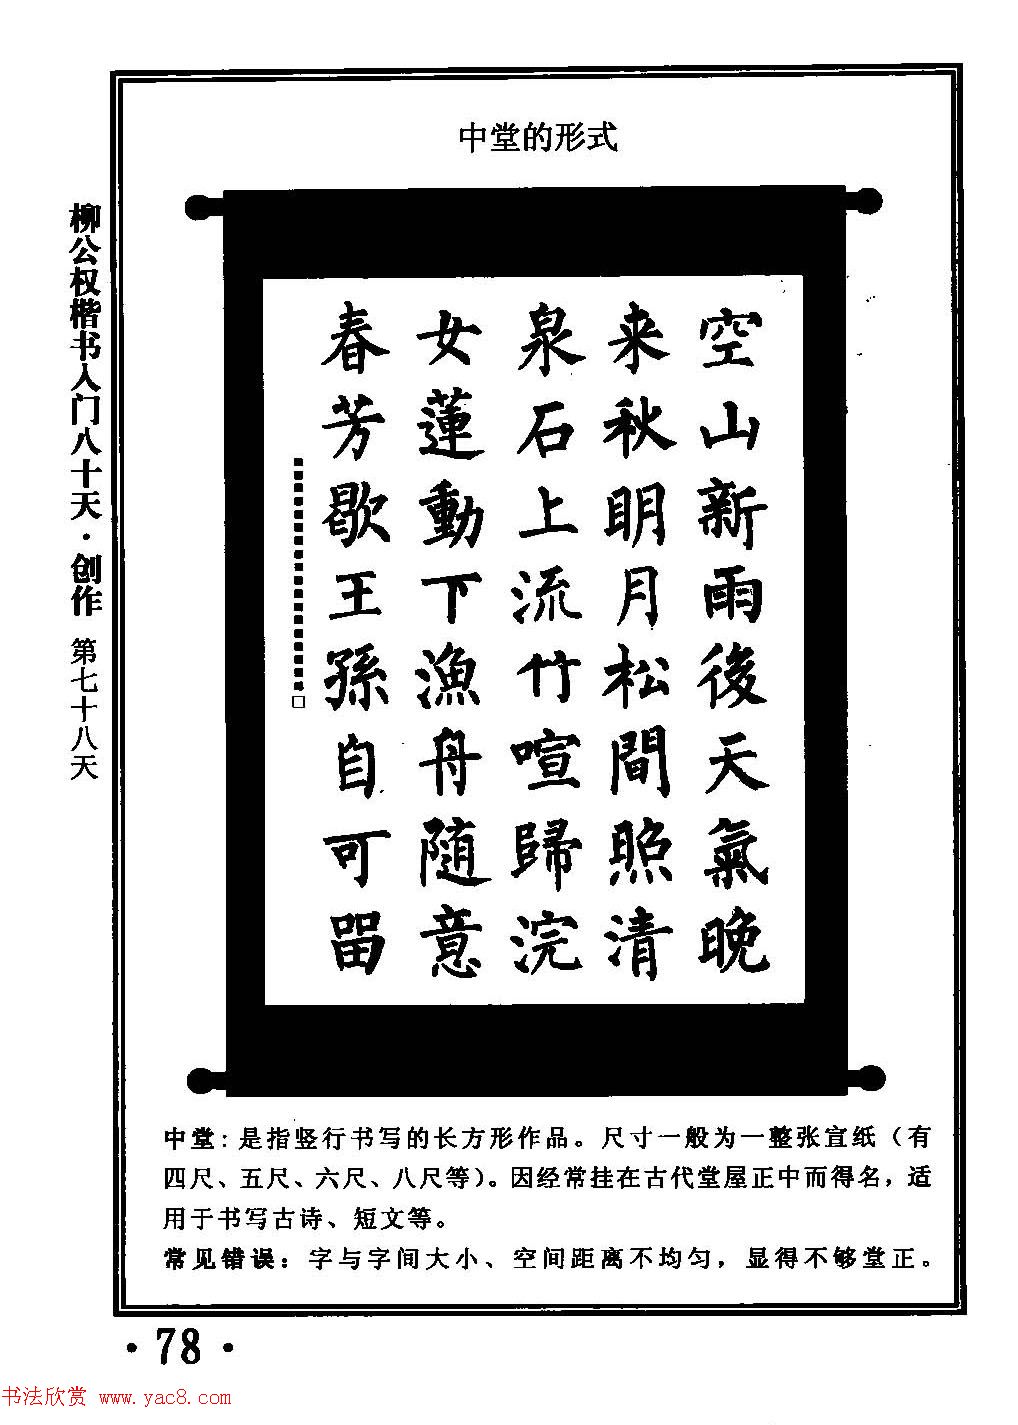 中堂的形式
柳公权楷书入门八十天·创作 第七十八天
空山新雨後天氣晚
来秋明月松間照清
泉石上流竹喧歸浣
女蓮動下漁舟随意
春芳歇王孫自可畱
中堂：是指竖行书写的长方形作品。尺寸一般为一整张宣纸（有
四尺、五尺、六尺、八尺等）。因经常挂在古代堂屋正中而得名，适
用于书写古诗、短文等。
常见错误：字与字间大小、空间距离不均匀，显得不够堂正。
·78·
书法欣赏 www.yac8.com